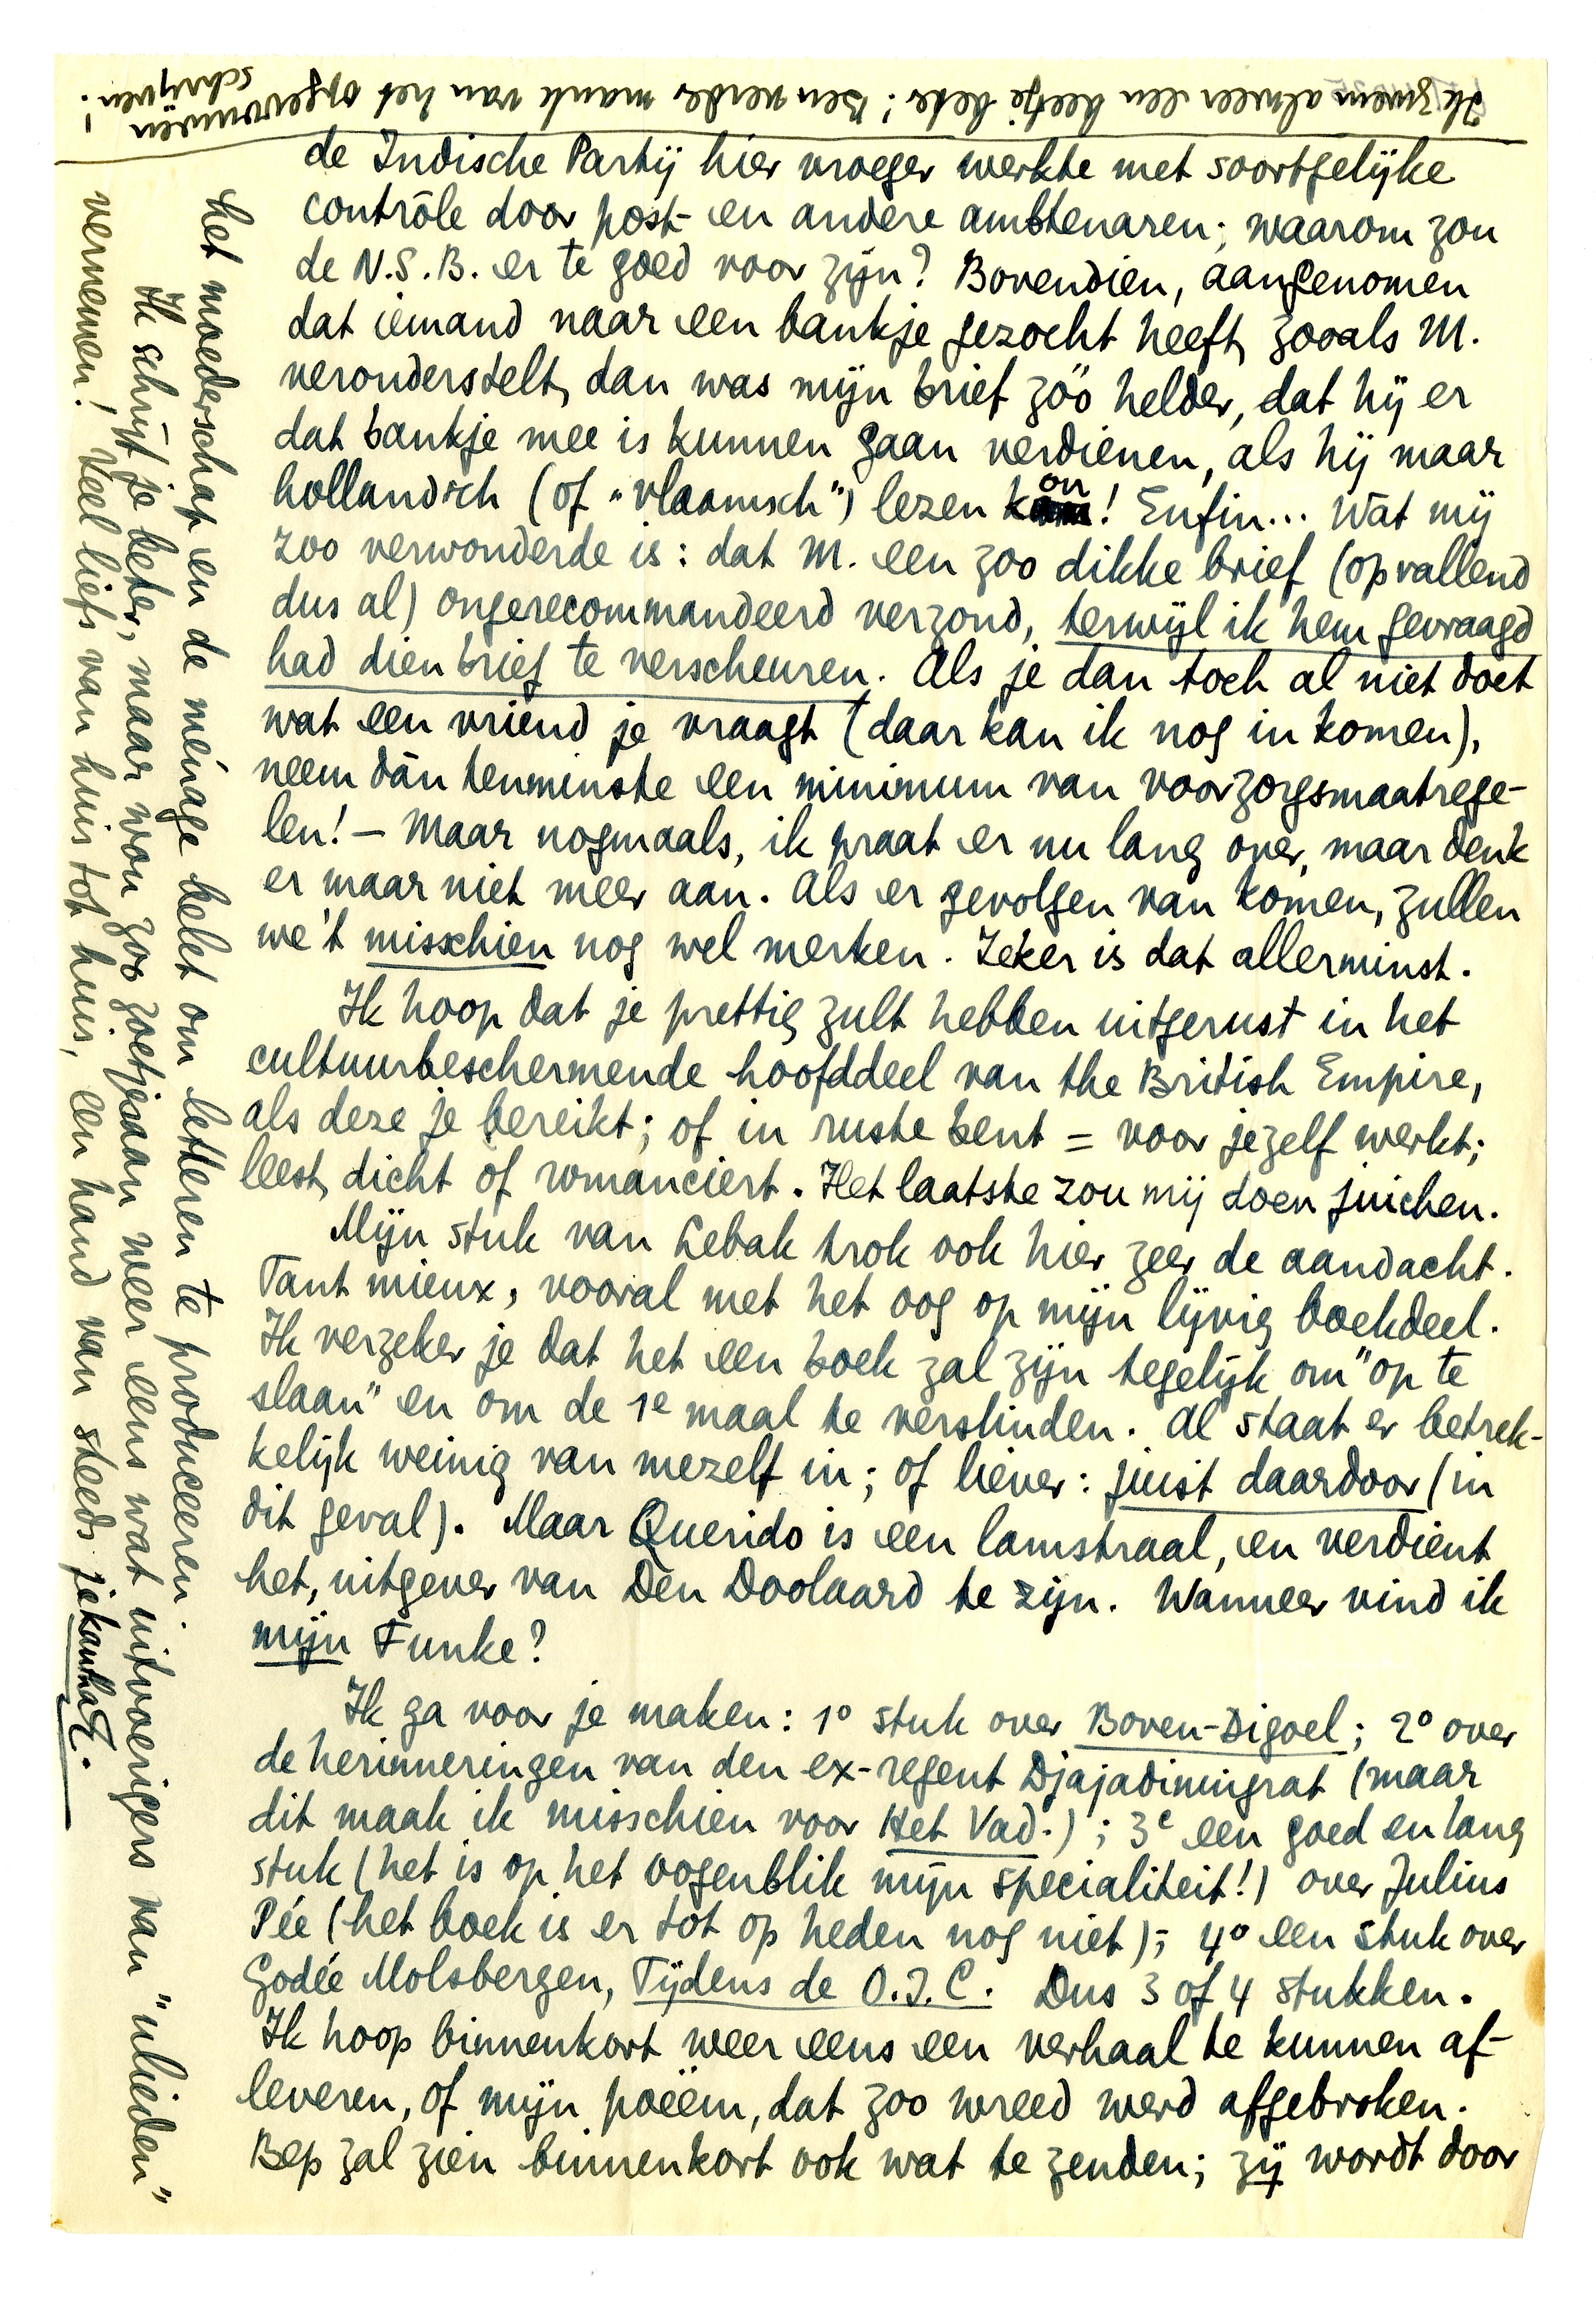 de Indische Partij hier vroeger werkte met soortgelijke
contrôle door post- en andere ambtenaren; waarom zou
de N.S.B. er te goed voor zijn? Bovendien, aangenomen
dat iemand naar een bankje gezocht heeft, zooals M.
veronderstelt, dan was mijn brief zóó helder, dat hij er
dat bankje mee is kunnen gaan verdienen, als hij maar
hollandsch (of "vlaamsch") lezen kon! Enfin... Wat mij
zoo verwonderde is: dat M. een zoo dikke brief (opvallend
dus al) ongerecommandeerd verzond, terwijl ik hem gevraagd
had dien brief te verscheuren. Als je dan toch al niet doet
wat een vriend je vraagt (daar kan ik nog in komen),
neem dàn tenminste een minimum van voorzorgsmaatrege-
len! – Maar nogmaals, ik praat er nu lang over, maar denk
er maar niet meer aan. Als er gevolgen van komen, zullen
we 't misschien nog wel merken. Zeker is dat allerminst.
Ik hoop dat je prettig zult hebben uitgerust in het
cultuurbeschermende hoofddeel van the British Empire,
als deze je bereikt; of in ruste bent = voor jezelf werkt;
leest, dicht of romanciert. Het laatste zou mij doen juichen.
Mijn stuk van Lebak trok ook hier zeer de aandacht.
Tant mieux, vooral met het oog op mijn lijvig boekdeel.
Ik verzeker je dat het een boek zal zijn tegelijk om "op te
slaan" en om de 1e maal te verslinden. Al staat er betrek-
kelijk weinig van mezelf in; of liever: juist daardoor (in
dit geval). Maar Querido is een lamstraal, en verdient
het, uitgever van Den Doolaard te zijn. Wanneer vind ik
mijn Funke?
Ik ga voor je maken: 1º stuk over Boven-Digoel; 2º over
de herinneringen van den ex-regent Djajadiningrat (maar
dit maak ik misschien voor Het Vad.); 3e een goed en lang
stuk (het is op het oogenblik mijn specialiteit!) over Julius
Pée (het boek is er tot op heden nog niet); 4º een stuk over
Godée Molsbergen, Tijdens de O.I.C. Dus 3 of 4 stukken.
Ik hoop binnenkort weer eens een verhaal te kunnen af-
leveren, of mijn poëem, dat zoo wreed werd afgebroken.
Bep zal zien binnenkort ook wat te zenden; zij wordt door
het moederschap en de ménage belet om letteren te produceeren.
Ik schrijf je beter, maar wou zoo zoetjesaan weer eens wat uitvoerigers van "ulieden"
vernemen! Veel liefs van huis tot huis, een hand van steeds je
Ik zwem alweer een beetje beter! Ben verder mank van het opgewonden
schrijven!